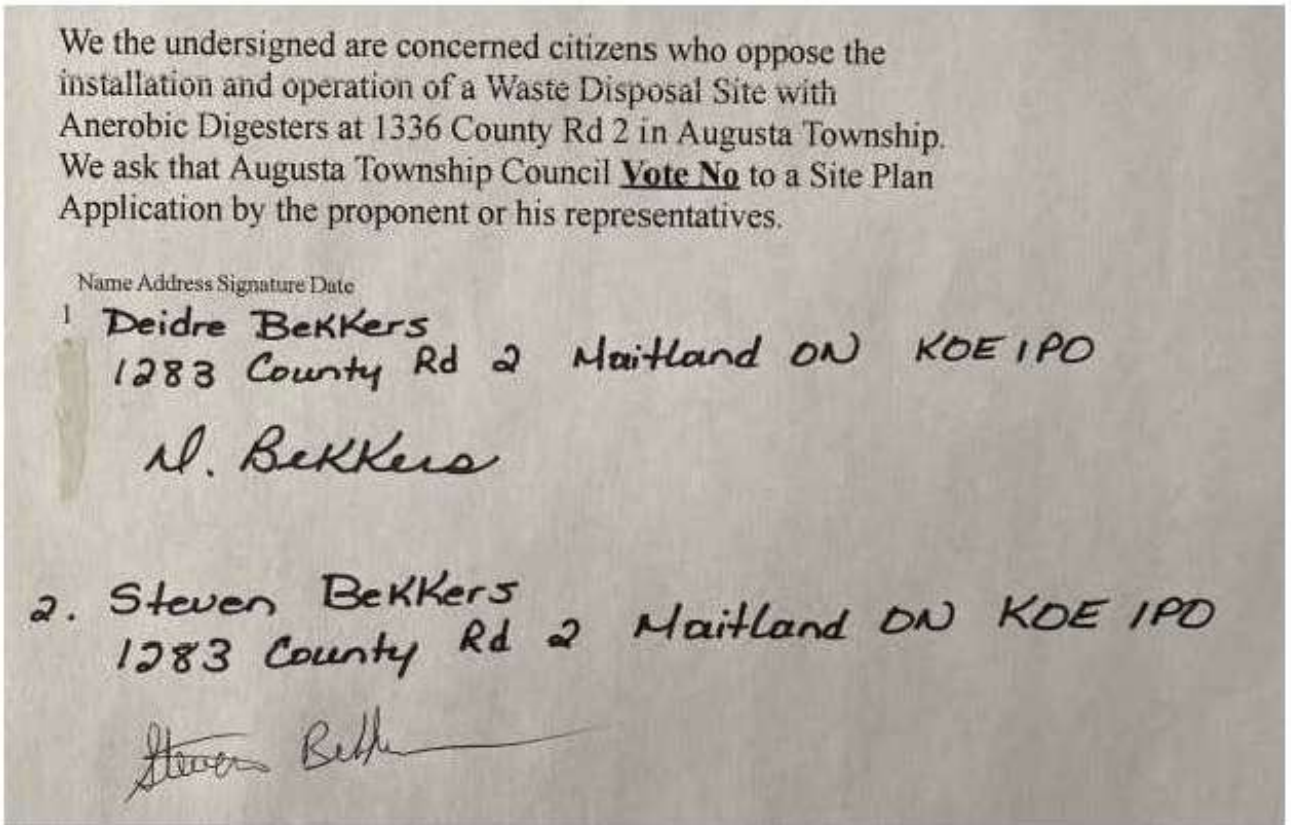 We the undersigned are concerned citizens who oppose the
installation and operation of a Waste Disposal Site with
Anerobic Digesters at 1336 County Rd 2 in Augusta Township.
We ask that Augusta Township Council Vote No to a Site Plan
Application by the proponent or his representatives.
Name Address Signature Date
1 Deidre Bekkers
1283 County Rd 2 Maitland ON K0E 1P0
D. Bekkers
2. Steven Bekkers
1283 County Rd 2 Maitland ON K0E 1P0
Steven Bekkers